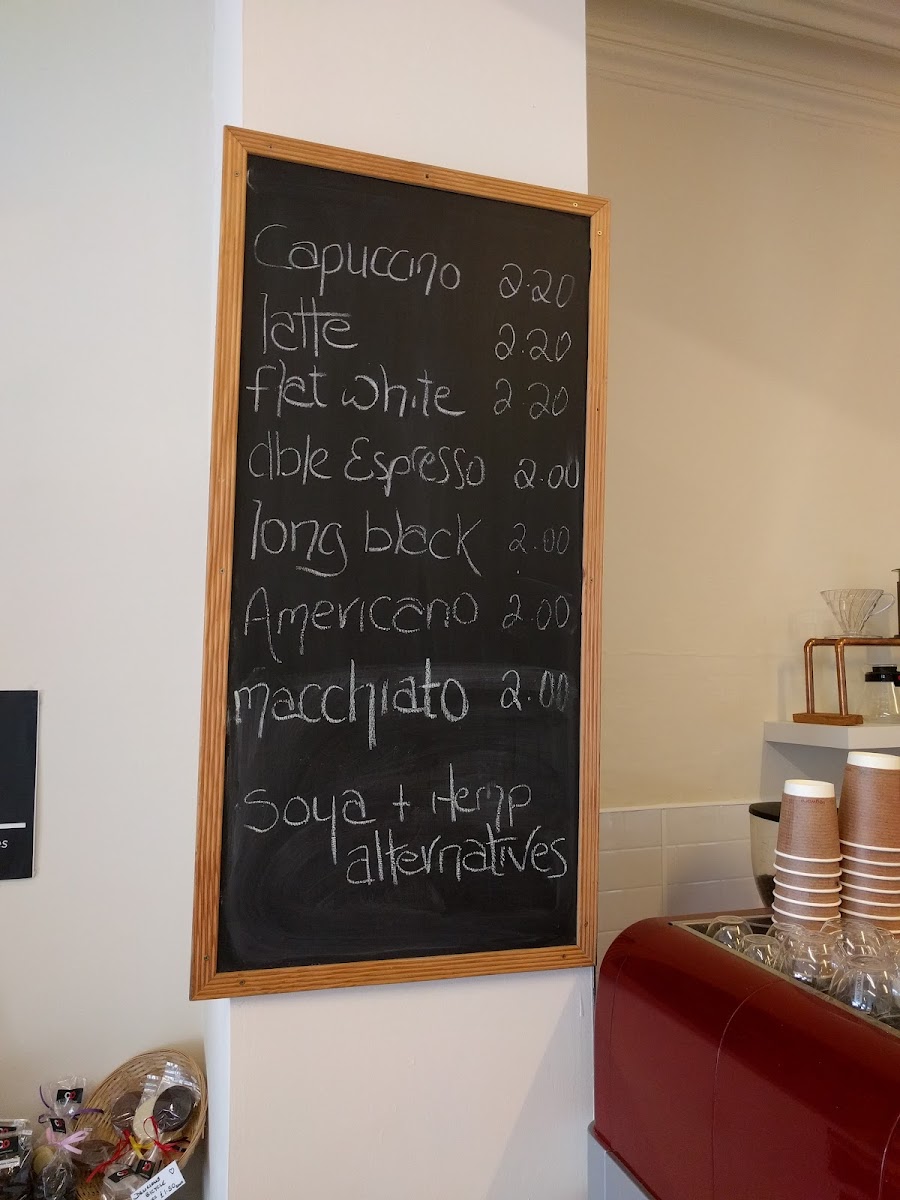 Capuccino 2.20
latte 2.20
flat white 2.20
dble Espresso 2.00
long black 2.00
Americano 2.00
macchiato 2.00
soya + Hemp
alternatives
DELICIOUS
£1.50